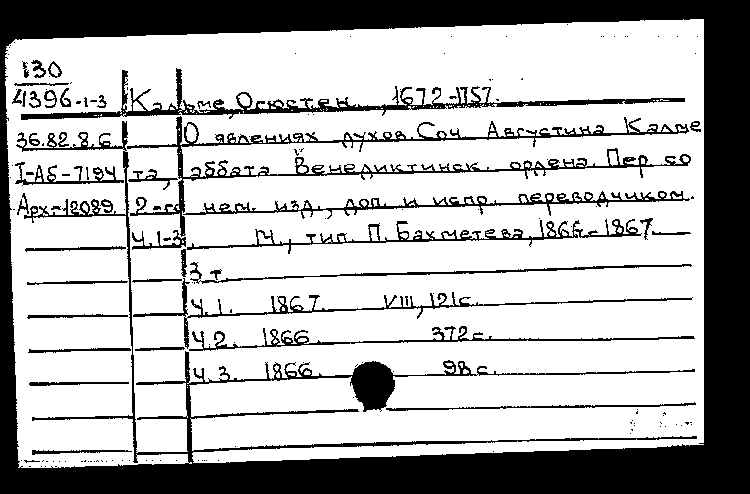 130
4396-1-3 Кальме, Огюстен, 1672-1757.
36.82.8.6 О явлениях духов. Соч. Августина Калме
I-АБ-7194 та, аббата Венедиктинск. ордена. Пер. со
Арх-12089. 2-го нем. изд., доп. и испр. переводчиком.
Ч.1-3. М., тип. П. Бахметева, 1866-1867.
3 т.
Ч.1. 1867. VIII, 121с.
Ч.2. 1866. 372с.
Ч.3. 1866. 98с.